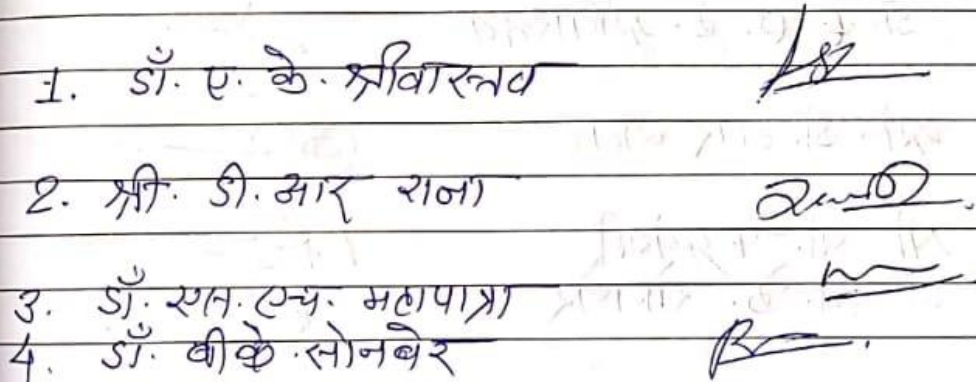 1. डॉ. ए. के. श्रीवास्तव
2. श्री. डी. आर राना
3. डॉ. एस. एच. महापात्रा
4. डॉ. बी के. सोनबेर